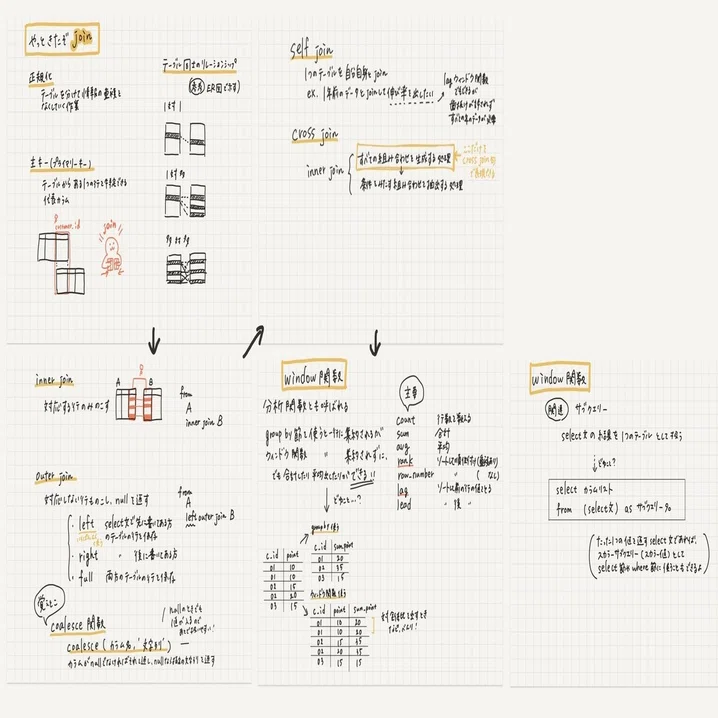 やっときたぞ join
正規化
テーブルを分けて情報の重複を
なくしていく作業
主キー(プライマリーキー)
テーブルから ある1つの行を特定できる
代表カラム
customer_id
join
テーブル同士のリレーションシップ
(参考 ER図で示す)
1対1
1対多
多対多
inner join
対応する行のみのこす
A B
from
A
inner join B
outer join
対応しない行ものこし、nullで返す
from
A
left outer join B
・left select文で先に書いてある方
のテーブルの行を保存
・right 〃 後に書いてある方
・full 両方のテーブルの行を保存
覚えとこ
coalesce 関数
coalesce (カラム名, "文字列")
nullのときでも
カラムがnullでなければそれを返し、nullならば指定の文字列を返す
self join
1つのテーブルを自分自身と join
ex. 1年前のデータとjoinして伸び率を出したい
lag ウィンドウ関数
でもできるが
歯抜けが許されず
すべての年のデータが必要
cross join
inner join
すべての組み合わせを生成する処理
↓
条件をみたす組み合わせを抽出する処理
ここだけを
cross joinが
window 関数
分析関数とも呼ばれる
group by 節を使うと一行に集約されるが
ウィンドウ関数 〃 集約されずに、
でも合計したり平均出したりができる!!
どゆこと…?
主要
count 行数を数える
sum 合計
avg 平均
rank
row_number ( 〃 なし)
lag ソートして前の行の値をとる
lead 〃 後 〃
group by 使う
c.id point
01 10
01 10
02 15
02 20
03 15
c.id sum.point
01 20
02 35
03 15
ウィンドウ関数使う
c.id point sum.point
01 10 20
01 10 20
02 15 35
02 20 35
03 15 15
window 関数
関連 サブクエリー
select 文の結果を1つのテーブルとして扱う
↓どゆこと?
select カラムリスト
from (select文) as サブクエリー名
たった1つの値を返すselect文であれば、
スカラーサブクエリー(スカラー値)として
select 節や where 節に使うこともできるよ